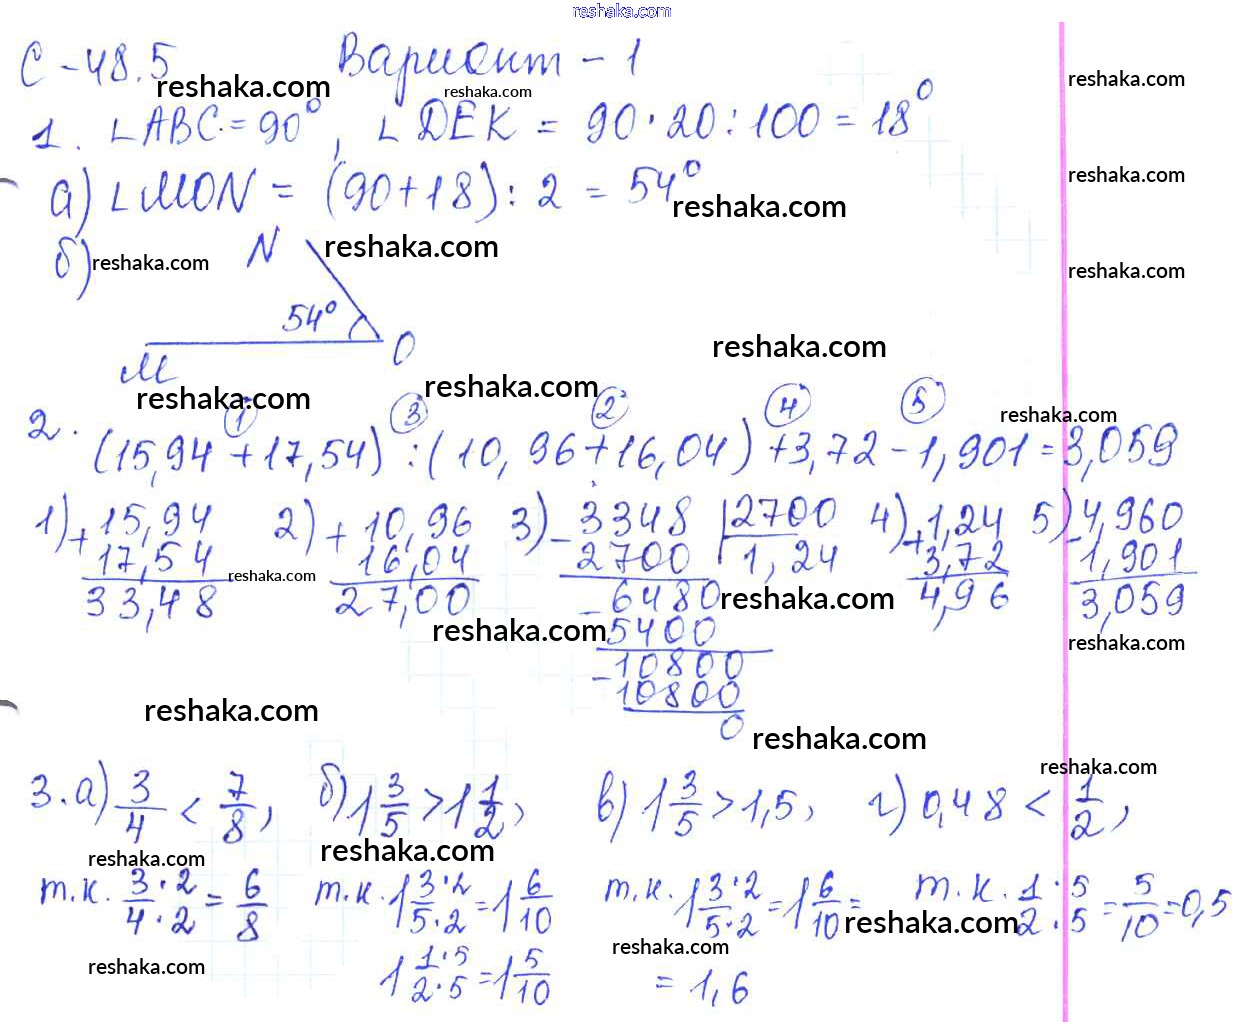 reshaka.com
С-48.5 Вариант - 1
reshaka.com reshaka.com reshaka.com
1. ∟ABC = 90°, ∟DEK = 90·20:100 = 18°
reshaka.com
а) ∟MON = (90+18):2 = 54°
reshaka.com
б) N
reshaka.com reshaka.com reshaka.com
54°
O
M
reshaka.com
reshaka.com reshaka.com reshaka.com
① ③ ② ④ ⑤
2. (15,94+17,54):(10,96+16,04)+3,72-1,901=3,059
1) +15,94 2) +10,96 3) -3348 |2700 4) +1,24 5) -4,960
17,54 16,04 2700 1,24 3,72 1,901
reshaka.com
33,48 27,00 -6480 4,96 3,059
reshaka.com
reshaka.com 5400
reshaka.com
-10800
10800
reshaka.com 0 reshaka.com
reshaka.com
3. а) 3/4 < 7/8, б) 1 3/5 > 1 1/2, в) 1 3/5 > 1,5, г) 0,48 < 1/2,
reshaka.com reshaka.com
т.к. 3·2/4·2 = 6/8 т.к. 1 3·2/5·2 = 1 6/10 т.к. 1 3·2/5·2 = 1 6/10 = т.к. 1·5/2·5 = 5/10 = 0,5
reshaka.com
reshaka.com reshaka.com
1 1·5/2·5 = 1 5/10 = 1,6